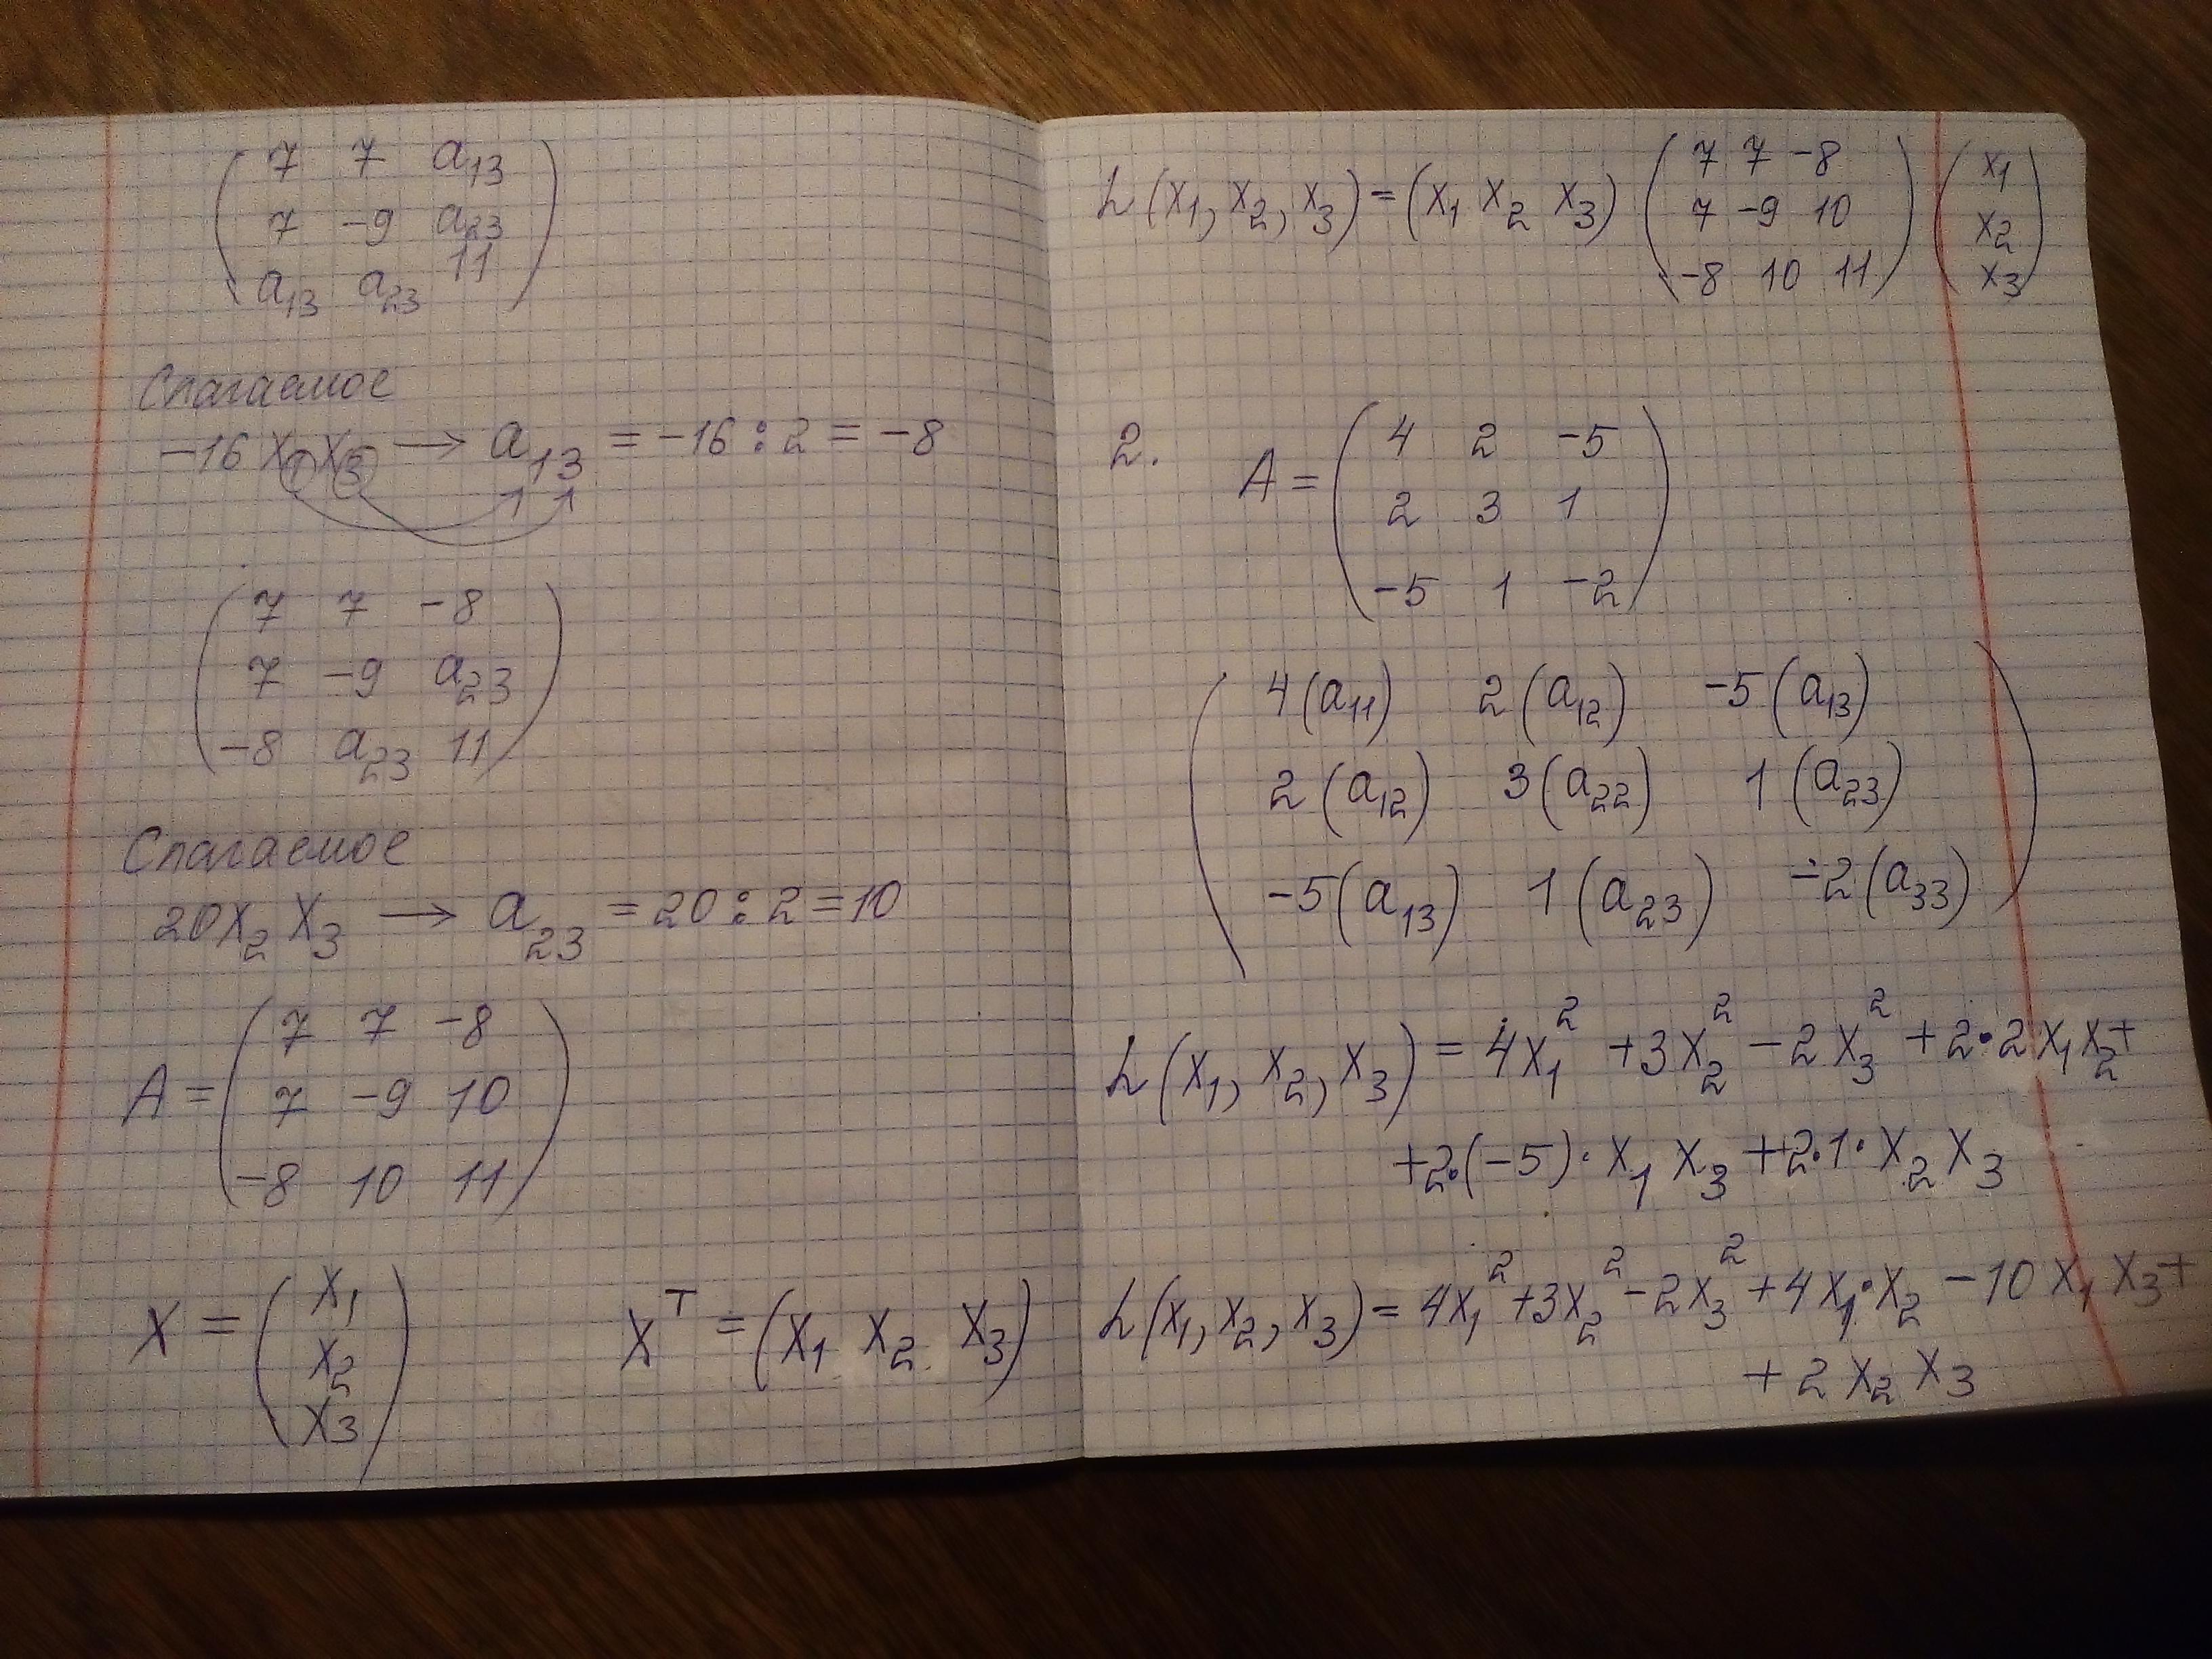 7 7 a₁₃
7 -9 a₂₃
a₁₃ a₂₃ 11
Слагаемое
-16 x₁x₃ → a₁₃ = -16 : 2 = -8
7 7 -8
7 -9 a₂₃
-8 a₂₃ 11
Слагаемое
20x₂ x₃ → a₂₃ = 20 : 2 = 10
A = ( 7 7 -8
7 -9 10
-8 10 11 )
X = ( x₁
x₂
x₃ )
Xᵀ = (x₁ x₂ x₃)
L(x₁, x₂, x₃) = (x₁ x₂ x₃) ( 7 7 -8
7 -9 10
-8 10 11 ) ( x₁
x₂
x₃ )
2. A = ( 4 2 -5
2 3 1
-5 1 -2 )
4(a₁₁) 2(a₁₂) -5(a₁₃)
2(a₁₂) 3(a₂₂) 1(a₂₃)
-5(a₁₃) 1(a₂₃) -2(a₃₃)
L(x₁, x₂, x₃) = 4x₁² + 3x₂² - 2x₃² + 2·2x₁x₂ +
+2·(-5)· x₁ x₃ + 2·1· x₂ x₃
L(x₁, x₂, x₃) = 4x₁² + 3x₂² - 2x₃² + 4x₁·x₂ - 10 x₁ x₃ +
+ 2 x₂ x₃